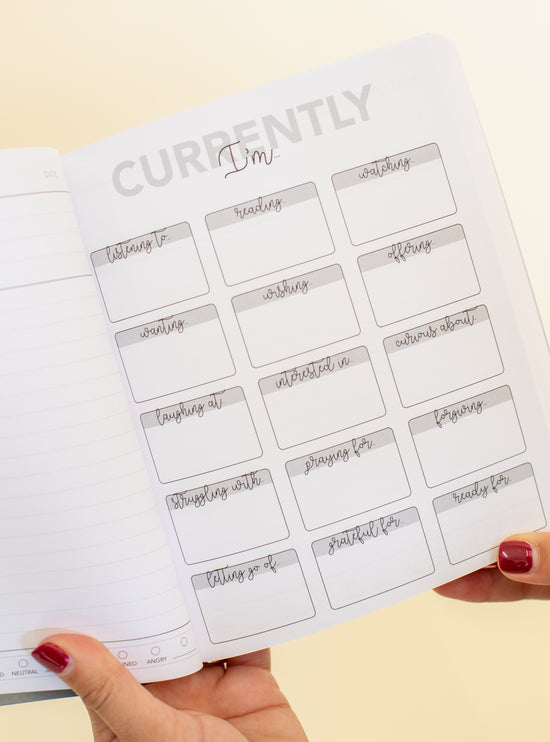 CURRENTLY
I'm...
listening to...
reading...
watching...
wanting...
wishing...
offering...
laughing at...
interested in...
curious about...
struggling with...
praying for...
forgiving...
letting go of...
grateful for...
ready for...
DATE
NEUTRAL
ANGRY